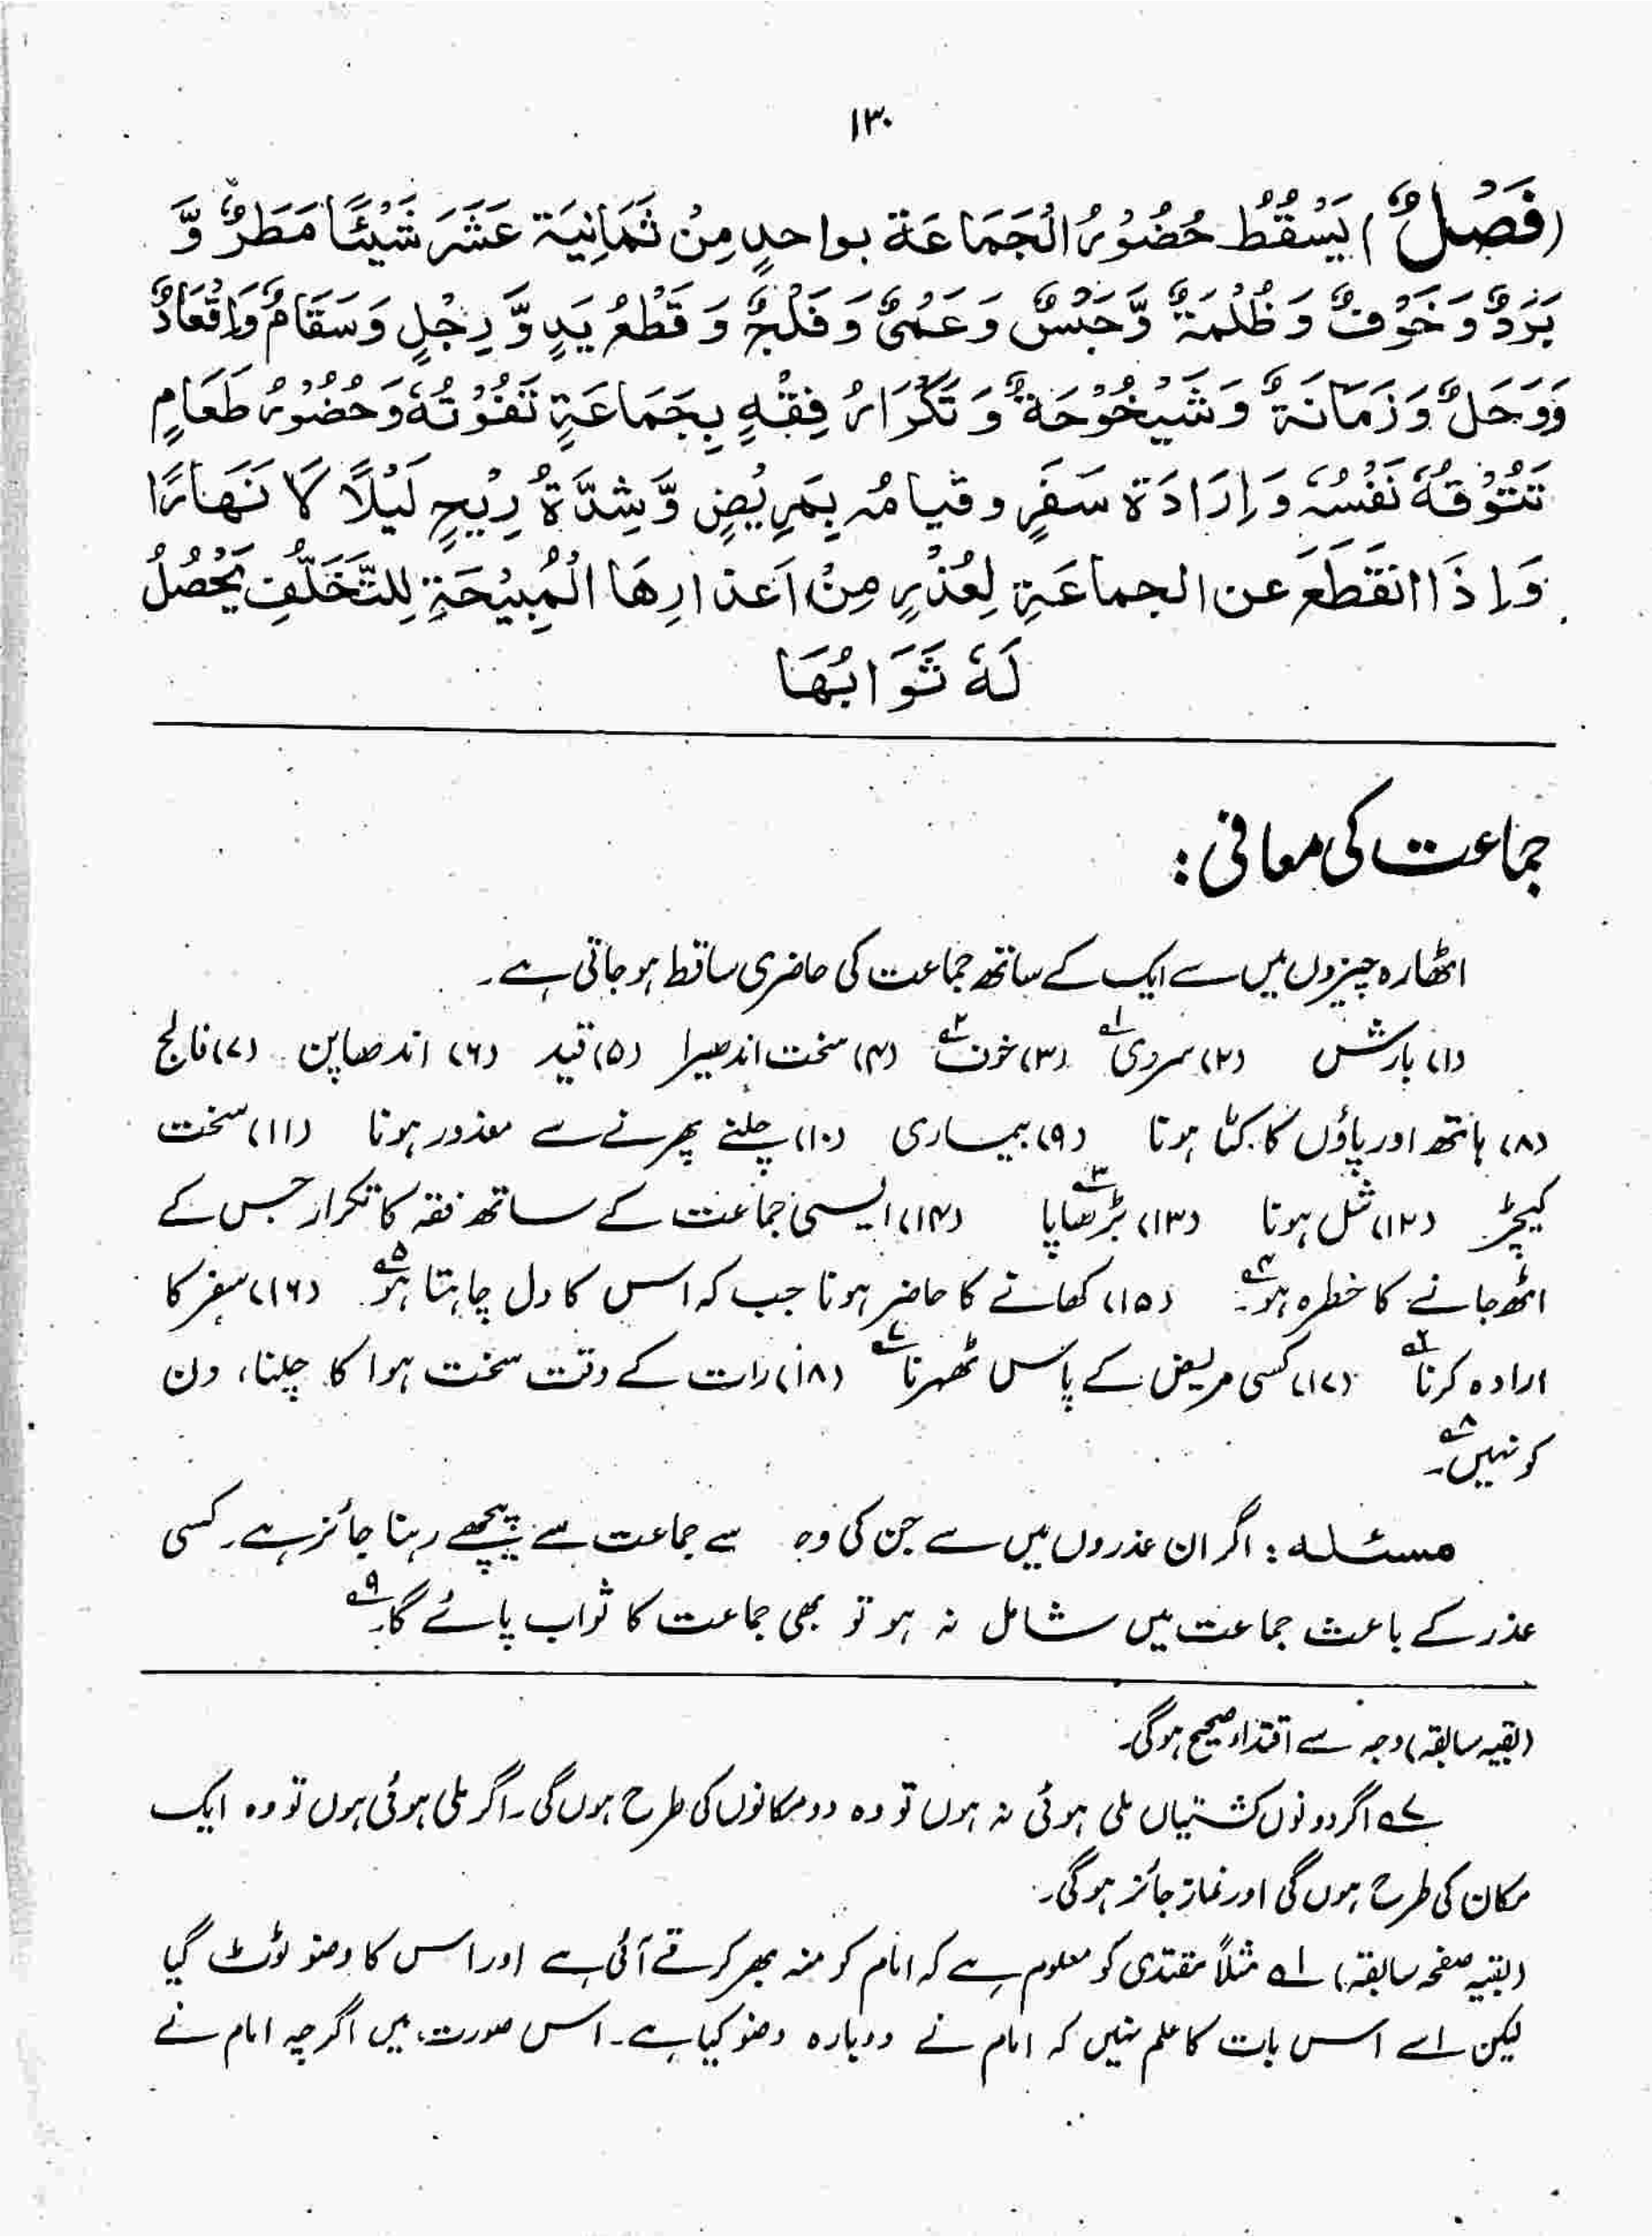 ۱۳۰
(فَصْلٌ) يَسْقُطُ حُضُوْرُ الْجَمَاعَة بواحدٍ مِنْ ثَمَانِيَة عَشَرَ شَيْئًا مَطَرٌ وَّ
بَرَدٌ وَخَوْفٌ وَظُلْمَةٌ وَّحَبْسٌ وَعَمًى وَفَلْجٌ وَ قَطْعُ يَدٍ وَّ رِجْلٍ وَسَقَامٌ وَاِقْعَادٌ
وَوَحَلٌ وَزَمَانَةٌ وَشَيْخُوْخَةٌ وَ تَكْرَارُ فِقْهٍ بِجَمَاعَةٍ تَفُوْتُهٗ وَحُضُوْرُ طَعَامٍ
تَتُوْقُهٗ نَفْسُهٗ وَاِرَادَة سَفَرٍ وقيامُه بِمَرِيْضٍ وَّشِدَّةُ رِيْحٍ لَيْلًا لَا نَهَارًا
وَاِذَا انقَطَعَ عن الجماعَةِ لِعُذْرٍ مِنْ اَعذارِهَا الْمُبِيْحَةِ لِلتَّخَلُّفِ يَحْصُلُ
لَهٗ ثَوَابُهَا
جماعت کی معافی :
اٹھارہ چیزوں میں سے ایک کے ساتھ جماعت کی حاضری ساقط ہو جاتی ہے۔
(۱) بارش (۲) سردی ۱ (۳) خوف ۲ (۴) سخت اندھیرا (۵) قید (۶) اندھاپن (۷) فالج
(۸) ہاتھ اور پاؤں کا کٹا ہونا (۹) بیماری (۱۰) چلنے پھرنے سے معذور ہونا (۱۱) سخت
کیچڑ (۱۲) شل ہونا (۱۳) بڑھاپا ۳ (۱۴) ایسی جماعت کے ساتھ فقہ کا تکرار جس کے
اٹھ جانے کا خطرہ ہو ۴۔ (۱۵) کھانے کا حاضر ہونا جب کہ اس کا دل چاہتا ہو ۵ (۱۶) سفر کا
ارادہ کرنا ۶ (۱۷) کسی مریض کے پاس ٹھہرنا ۷ (۱۸) رات کے وقت سخت ہوا کا چلنا، دن
کو نہیں ۸۔
مسئلہ : اگر ان عذروں میں سے جن کی وجہ سے جماعت سے پیچھے رہنا جائز ہے۔ کسی
عذر کے باعث جماعت میں شامل نہ ہو تو بھی جماعت کا ثواب پائے گا۔ ۹
(بقیہ سابقہ) وجہ سے اقتداء صحیح ہوگی۔
۷ اگر دونوں کشتیاں ملی ہوئی نہ ہوں تو وہ دو مکانوں کی طرح ہوں گی۔ اگر ملی ہوئی ہوں تو وہ ایک
مکان کی طرح ہوں گی اور نماز جائز ہوگی۔
(بقیہ صفحہ سابقہ) ۱ مثلاً مقتدی کو معلوم ہے کہ امام کو منہ بھر کر قے آئی ہے اور اس کا وضو ٹوٹ گیا
لیکن اسے اس بات کا علم نہیں کہ امام نے دوبارہ وضو کیا ہے۔ اس صورت میں اگرچہ امام نے